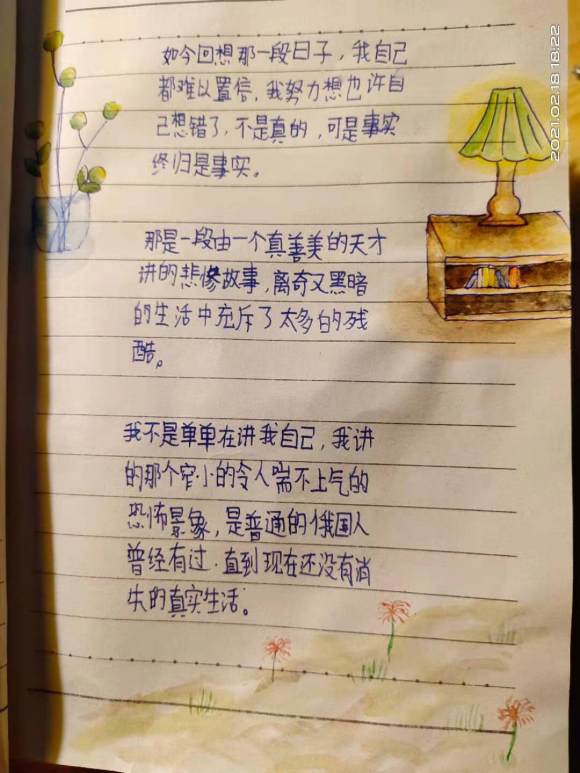 如今回想那一段日子，我自己
都难以置信，我努力想也许自
己想错了，不是真的，可是事实
终归是事实。
那是一段由一个真善美的天才
讲的悲惨故事，离奇又黑暗
的生活中充斥了太多的残
酷。
我不是单单在讲我自己，我讲
的那个窄小的令人喘不上气的
恐怖景象，是普通的俄国人
曾经有过，直到现在还没有消
失的真实生活。
2021.02.18 18:22